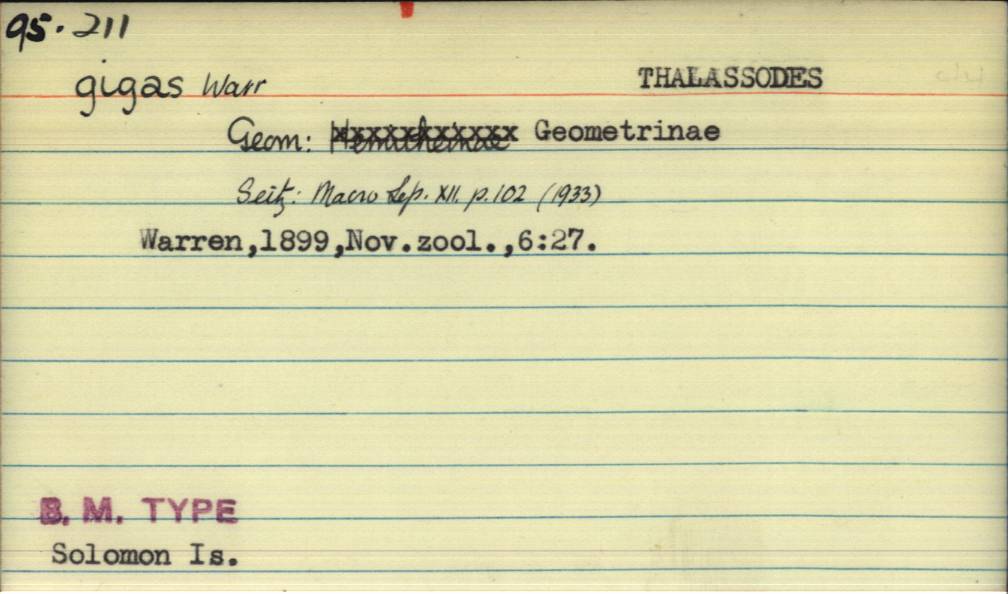 95.211
gigas Warr THALASSODES
Geom: Hemitheinae Geometrinae
Seitz: Macro Lep. XII. p.102 (1933)
Warren,1899,Nov.zool.,6:27.
B. M. TYPE
Solomon Is.